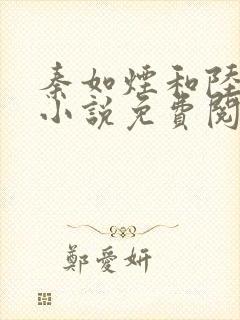 秦如煙和陸
小說免費閱
鄭愛妍